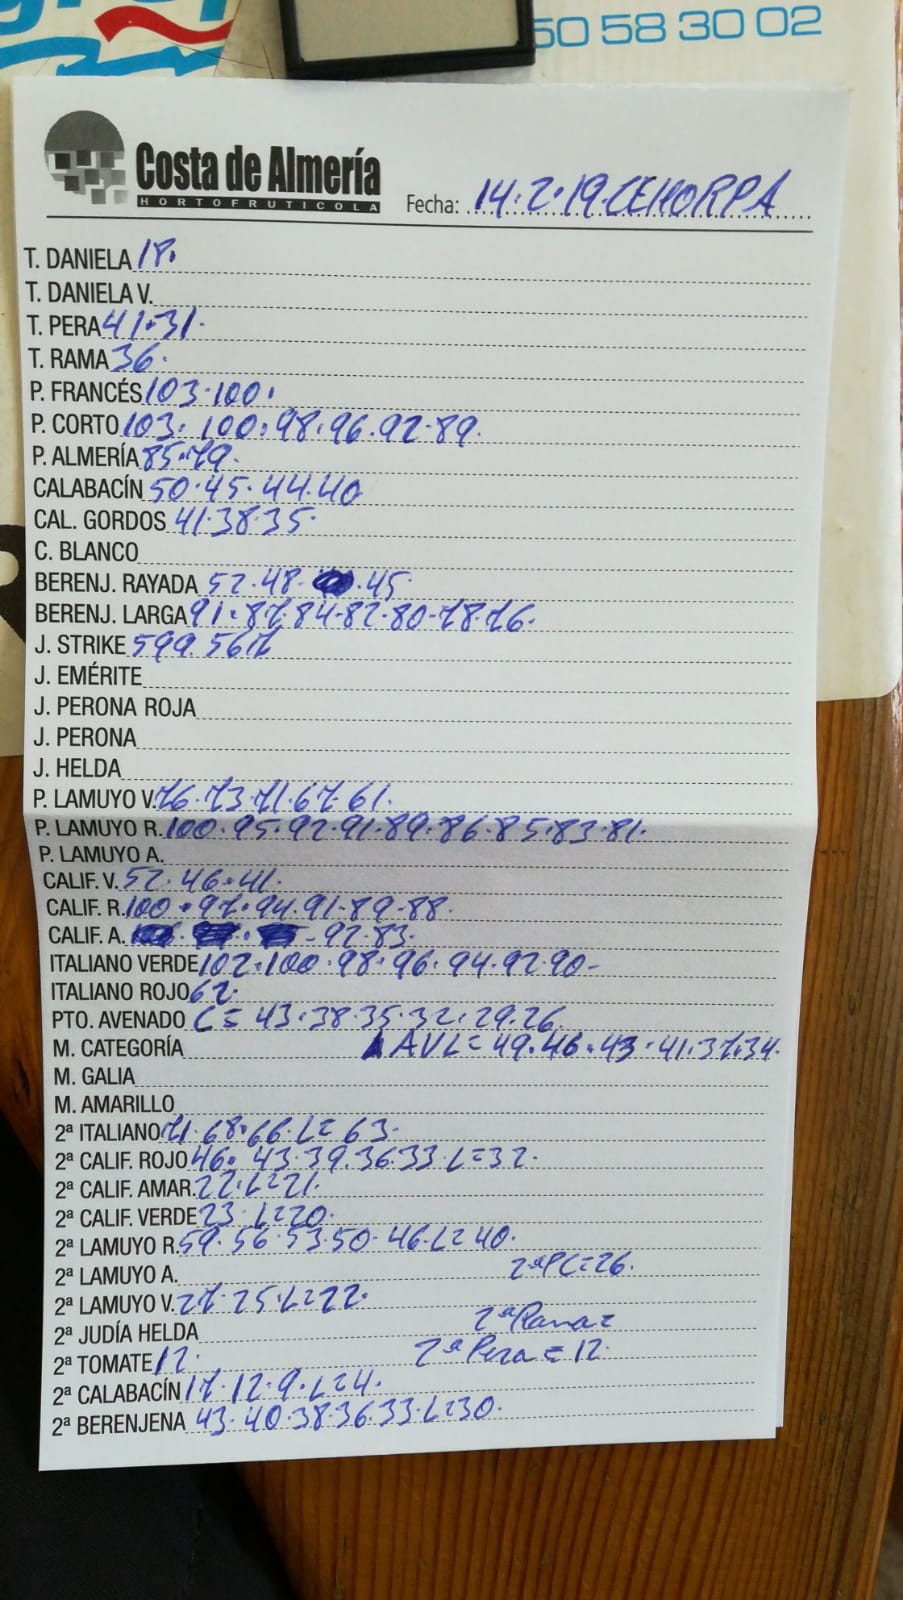 50 58 30 02
Costa de Almería
HORTOFRUTICOLA
Fecha: 14.2.19.CEHORPA
T. DANIELA 18.
T. DANIELA V.
T. PERA 41.31.
T. RAMA 36.
P. FRANCÉS 103.100.
P. CORTO 103.100.98.96.92.89.
P. ALMERÍA 85.79.
CALABACÍN 50.45.44.40
CAL. GORDOS 41.38.35.
C. BLANCO
BERENJ. RAYADA 52.48. .45.
BERENJ. LARGA 91.87.84.82.80.78.76.
J. STRIKE 599.567
J. EMÉRITE
J. PERONA ROJA
J. PERONA
J. HELDA
P. LAMUYO V. 76.73.71.67.61.
P. LAMUYO R. 100.95.92.91.89.86.85.83.81.
P. LAMUYO A.
CALIF. V. 52.46.41.
CALIF. R. 100.97.94.91.89.88.
CALIF. A. -92.83.
ITALIANO VERDE 102.100.98.96.94.92.90-
ITALIANO ROJO 62.
PTO. AVENADO C= 43.38.35.32.29.26
M. CATEGORÍA AVL= 49.46.43.41.37.34.
M. GALIA
M. AMARILLO
2ª ITALIANO 71.68.66.L=63.
2ª CALIF. ROJO 46.43.39.36.33.L=32.
2ª CALIF. AMAR. 22.L=21.
2ª CALIF. VERDE 23.L=20.
2ª LAMUYO R. 59.56.53.50.46.L=40.
2ª LAMUYO A. 2ªPC=26.
2ª LAMUYO V. 27.25.L=22.
2ª JUDÍA HELDA 2ªRama=
2ª TOMATE 12. 2ª Pera=12.
2ª CALABACÍN 17.12.9.L=4.
2ª BERENJENA 43.40.38.36.33.L=30.